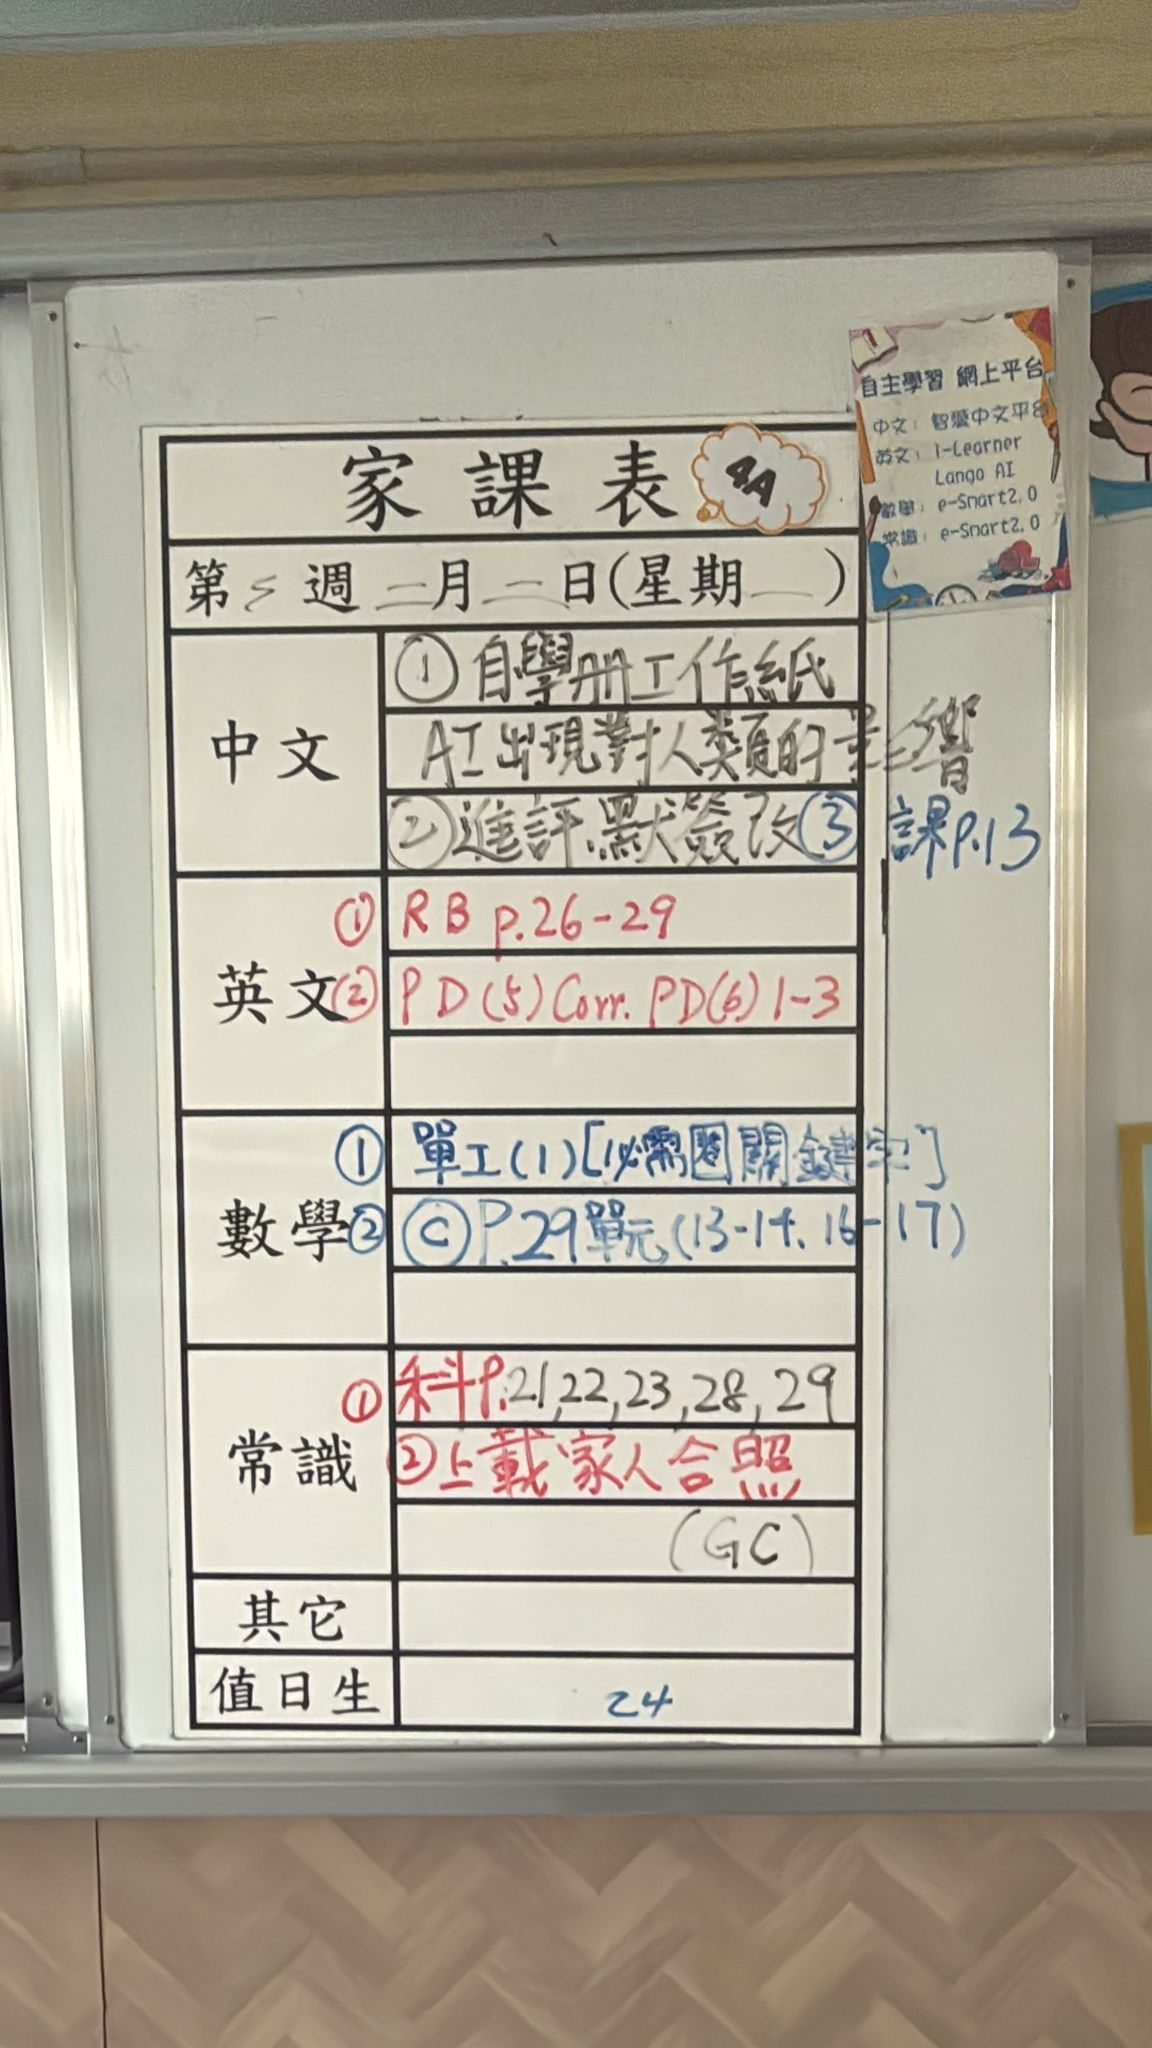 家課表
4A
自主學習 網上平台
中文：智愛中文平台
英文：i-Learner
Lango AI
數學：e-Smart2.0
常識：e-Smart2.0
第 週 二月二日(星期一)
中文
① 自學册工作紙
AI出現對人類的影響
②進評.默簽改③ 課P.13
英文
① RB p.26-29
② PD(5) Corr. PD(6) 1-3
數學
① 單工(1)[必需圈關鍵字]
② Ⓒ P.29單元(13-14. 16-17)
常識
① 科P.21,22,23,28,29
②上載家人合照
(GC)
其它
值日生
24